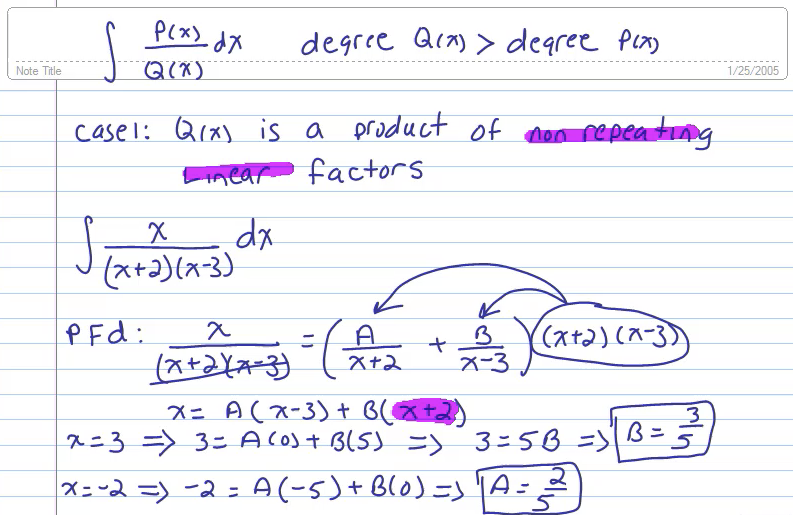 ∫ P(x)/Q(x) dx degree Q(x) > degree P(x)
Note Title 1/25/2005
case1: Q(x) is a product of non repeating
Linear factors
∫ x/((x+2)(x-3)) dx
PFd: x/((x+2)(x-3)) = (A/(x+2) + B/(x-3)) (x+2)(x-3)
x = A(x-3) + B(x+2)
x=3 => 3 = A(0) + B(5) => 3=5B => B = 3/5
x=-2 => -2 = A(-5) + B(0) => A = 2/5